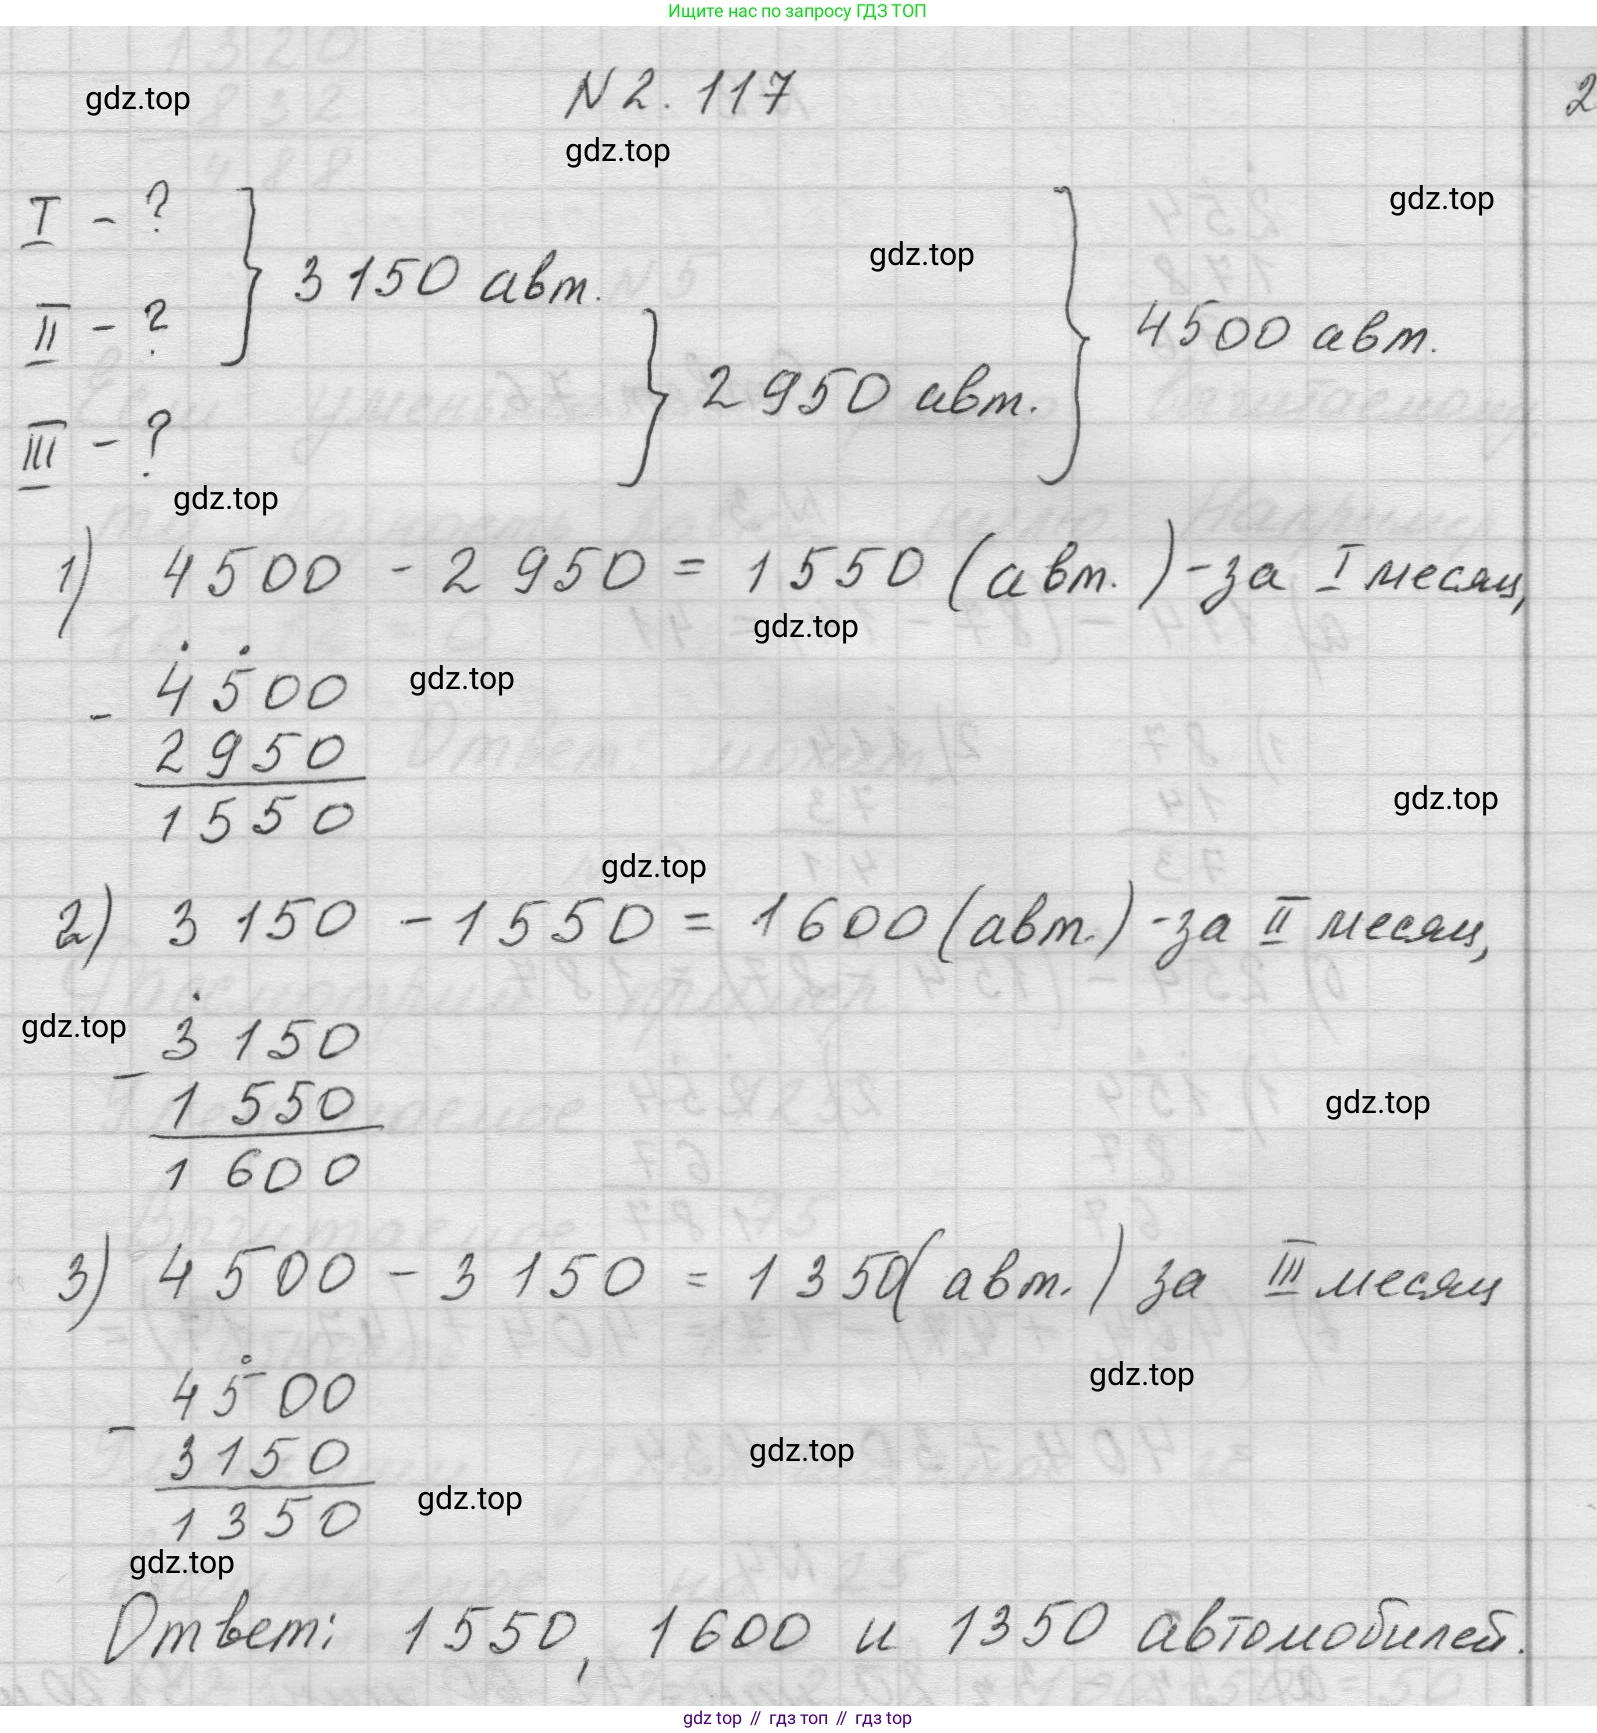 Ищите нас по запросу ГДЗ ТОП
N 2.117
2
gdz.top
gdz.top
I - ?
II - ?
III - ?
3150 авт.
2950 авт.
4500 авт.
gdz.top
gdz.top
gdz.top
1) 4500 - 2950 = 1550 (авт.) - за I месяц,
gdz.top
gdz.top
- 4500
2950
1550
gdz.top
gdz.top
2) 3150 - 1550 = 1600 (авт.) - за II месяц,
gdz.top
- 3150
1550
1600
gdz.top
3) 4500 - 3150 = 1350 (авт.) за III месяц
gdz.top
- 4500
3150
1350
gdz.top
gdz.top
gdz.top
Ответ: 1550, 1600 и 1350 автомобилей.
gdz top // гдз топ // гдз top